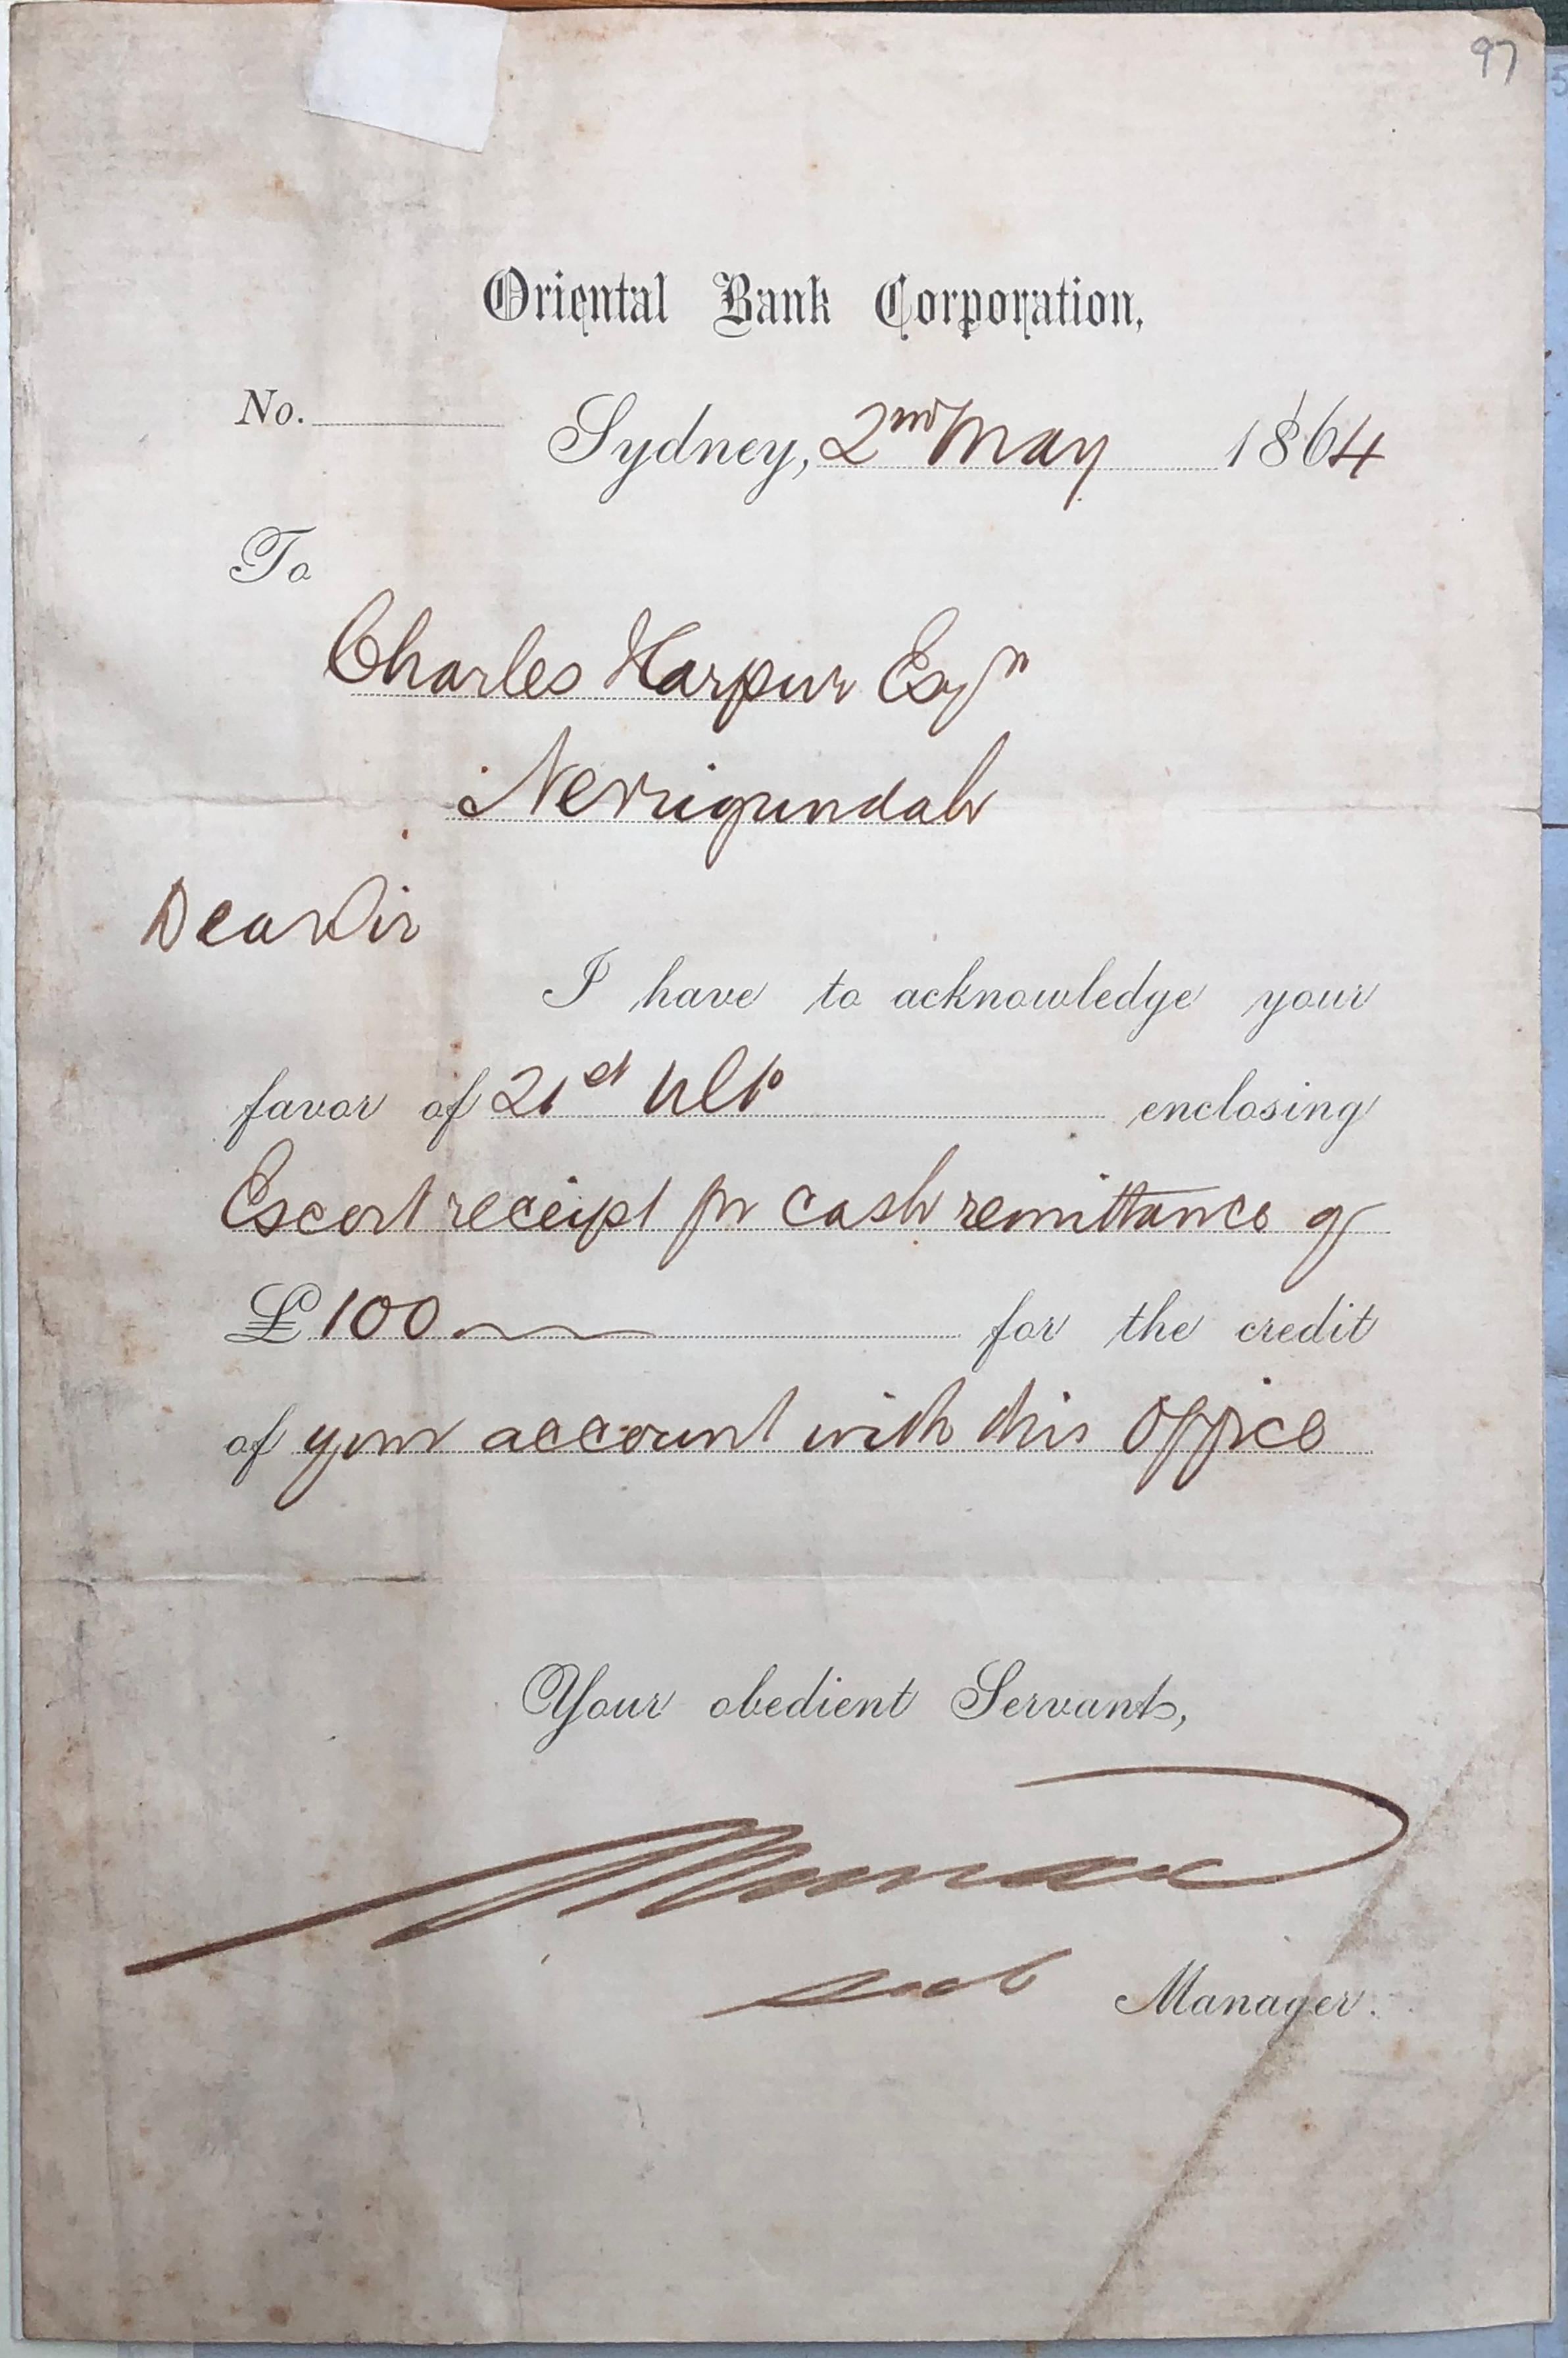 97
Oriental Bank Corporation.
No.
Sydney, 2nd May 1864
To
Charles Harpur Esqr
Nerrigundah
Dear Sir
I have to acknowledge your
favor of 21st Ulto enclosing
Escort receipt for cash remittance of
£100 for the credit
of your account with this Office
Your obedient Servant,
Manager.